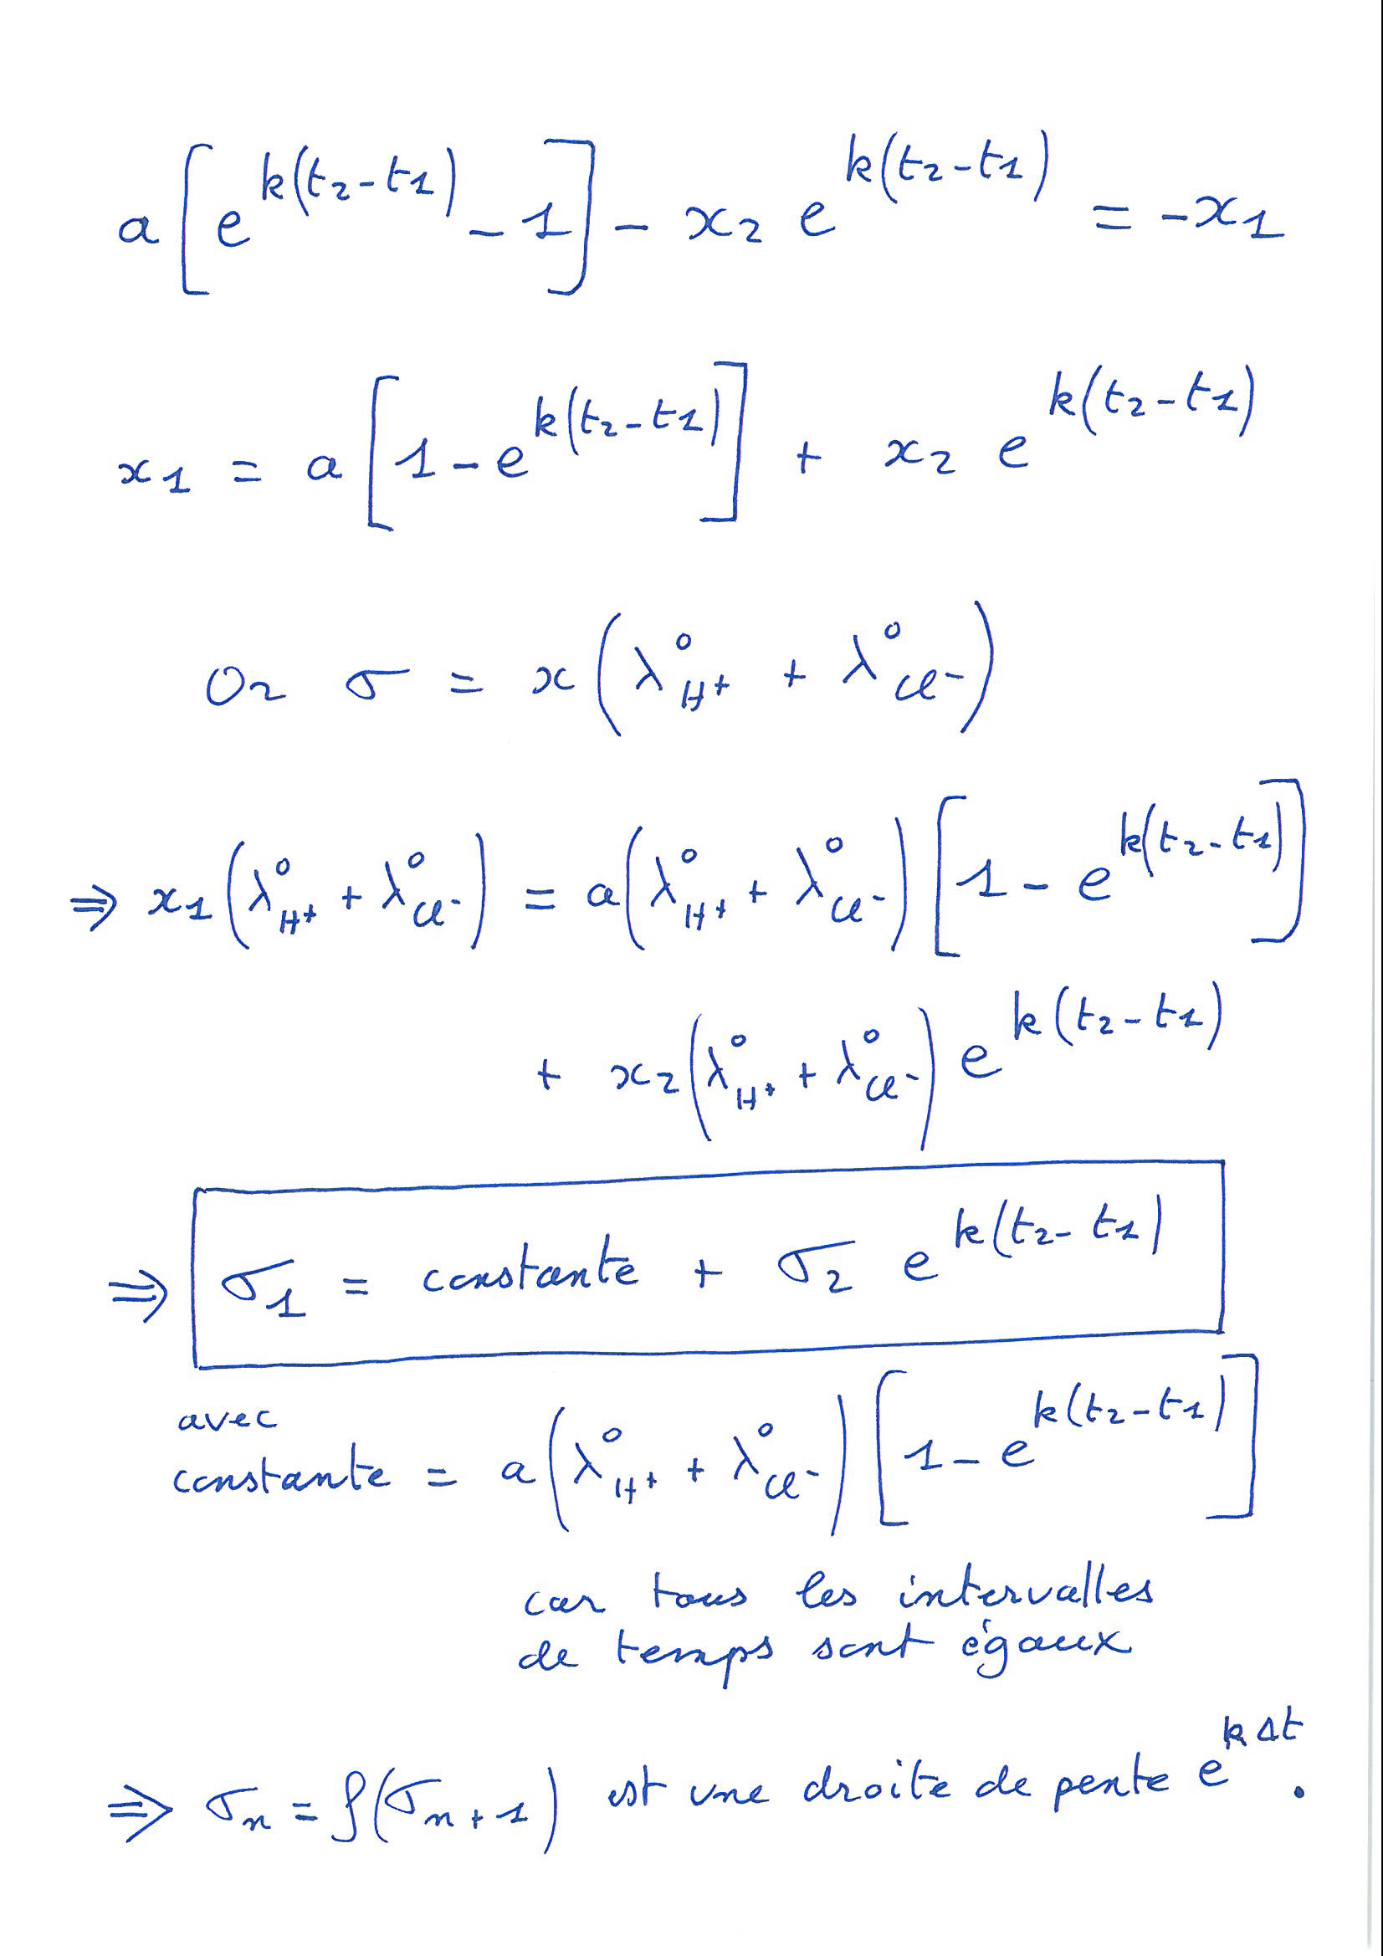 a[e^{k(t₂-t₁)} - 1] - x₂ e^{k(t₂-t₁)} = -x₁
x₁ = a[1 - e^{k(t₂-t₁)}] + x₂ e^{k(t₂-t₁)}
Or σ = x(λ°_{H⁺} + λ°_{Cl⁻})
⇒ x₁(λ°_{H⁺} + λ°_{Cl⁻}) = a(λ°_{H⁺} + λ°_{Cl⁻})[1 - e^{k(t₂-t₁)}]
+ x₂(λ°_{H⁺} + λ°_{Cl⁻}) e^{k(t₂-t₁)}
⇒ σ₁ = constante + σ₂ e^{k(t₂-t₁)}
avec
constante = a(λ°_{H⁺} + λ°_{Cl⁻})[1 - e^{k(t₂-t₁)}]
car tous les intervalles
de temps sont égaux
⇒ σ_n = f(σ_{n+1}) est une droite de pente e^{kΔt}.